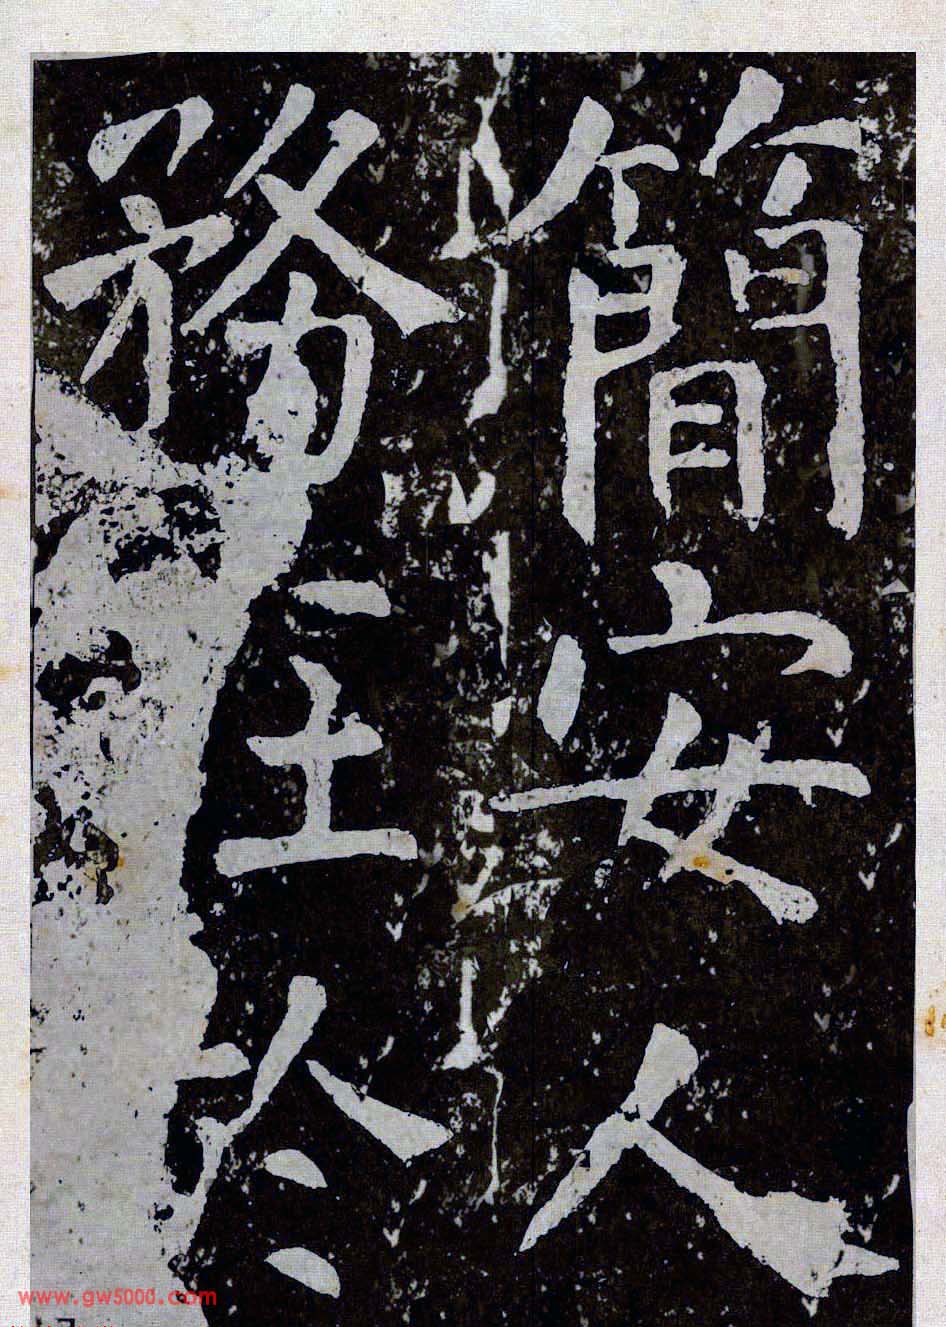 簡安人
務於
www.gw5000.com